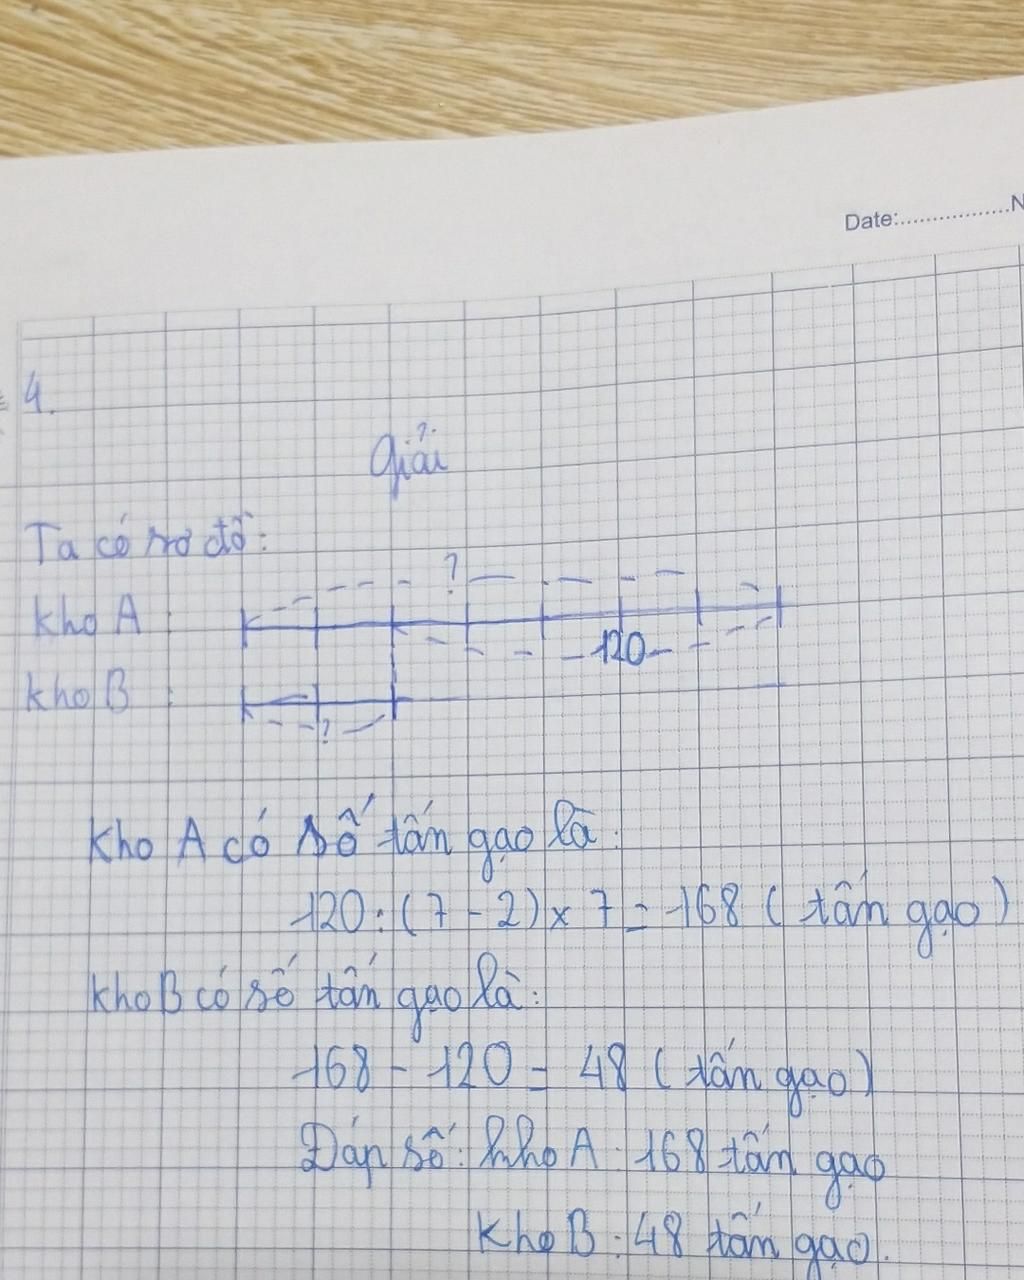 Date:.................N
4.
Giải
Ta có sơ đồ:
?
Kho A :
120
Kho B :
?
Kho A có số tấn gạo là:
120 : (7 - 2) x 7 = 168 (tấn gạo)
Kho B có số tấn gạo là:
168 - 120 = 48 (tấn gạo)
Đáp số: Kho A : 168 tấn gạo
Kho B : 48 tấn gạo.